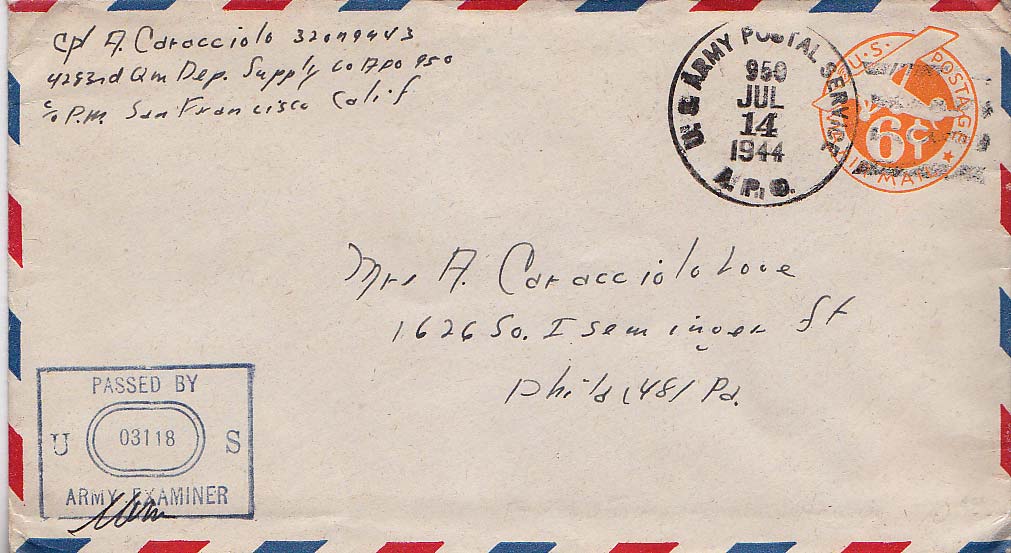 Cpl A. Caracciolo 32079443
4283rd Qm Dep. Supply Co APO 950
c/o P.M. San Francisco Calif
U. S. ARMY POSTAL SERVICE
950
JUL
14
1944
A.P.O.
U.S. POSTAGE
6¢
AIR MAIL
Mrs A. Caracciolo Love
1626 So. Iseminger St
Phila (48) Pa.
PASSED BY
U 03118 S
ARMY EXAMINER